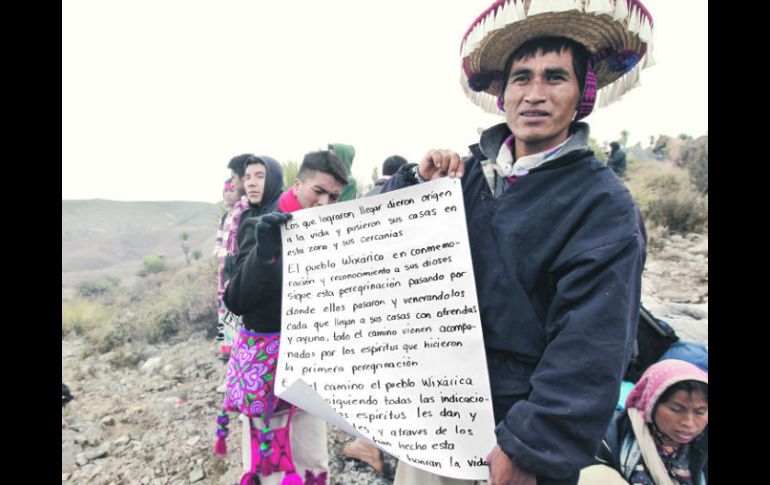 Los que lograron llegar dieron origen
a la vida y pusieron sus casas en
esta zona y sus cercanias.
El pueblo Wixárica en conmemo-
ración y reconocimiento a sus dioses
sigue esta peregrinación pasando por
donde ellos pasaron y venerandolos
cada que llegan a sus casas con ofrendas
y ayuno, todo el camino vienen acompa-
nados por los espiritus que hicieron
la primera peregrinación.
el camino el pueblo Wixárica
siguiendo todas las indicacio-
espiritus les dan y
y atraves de los
han hecho esta
honran la vida